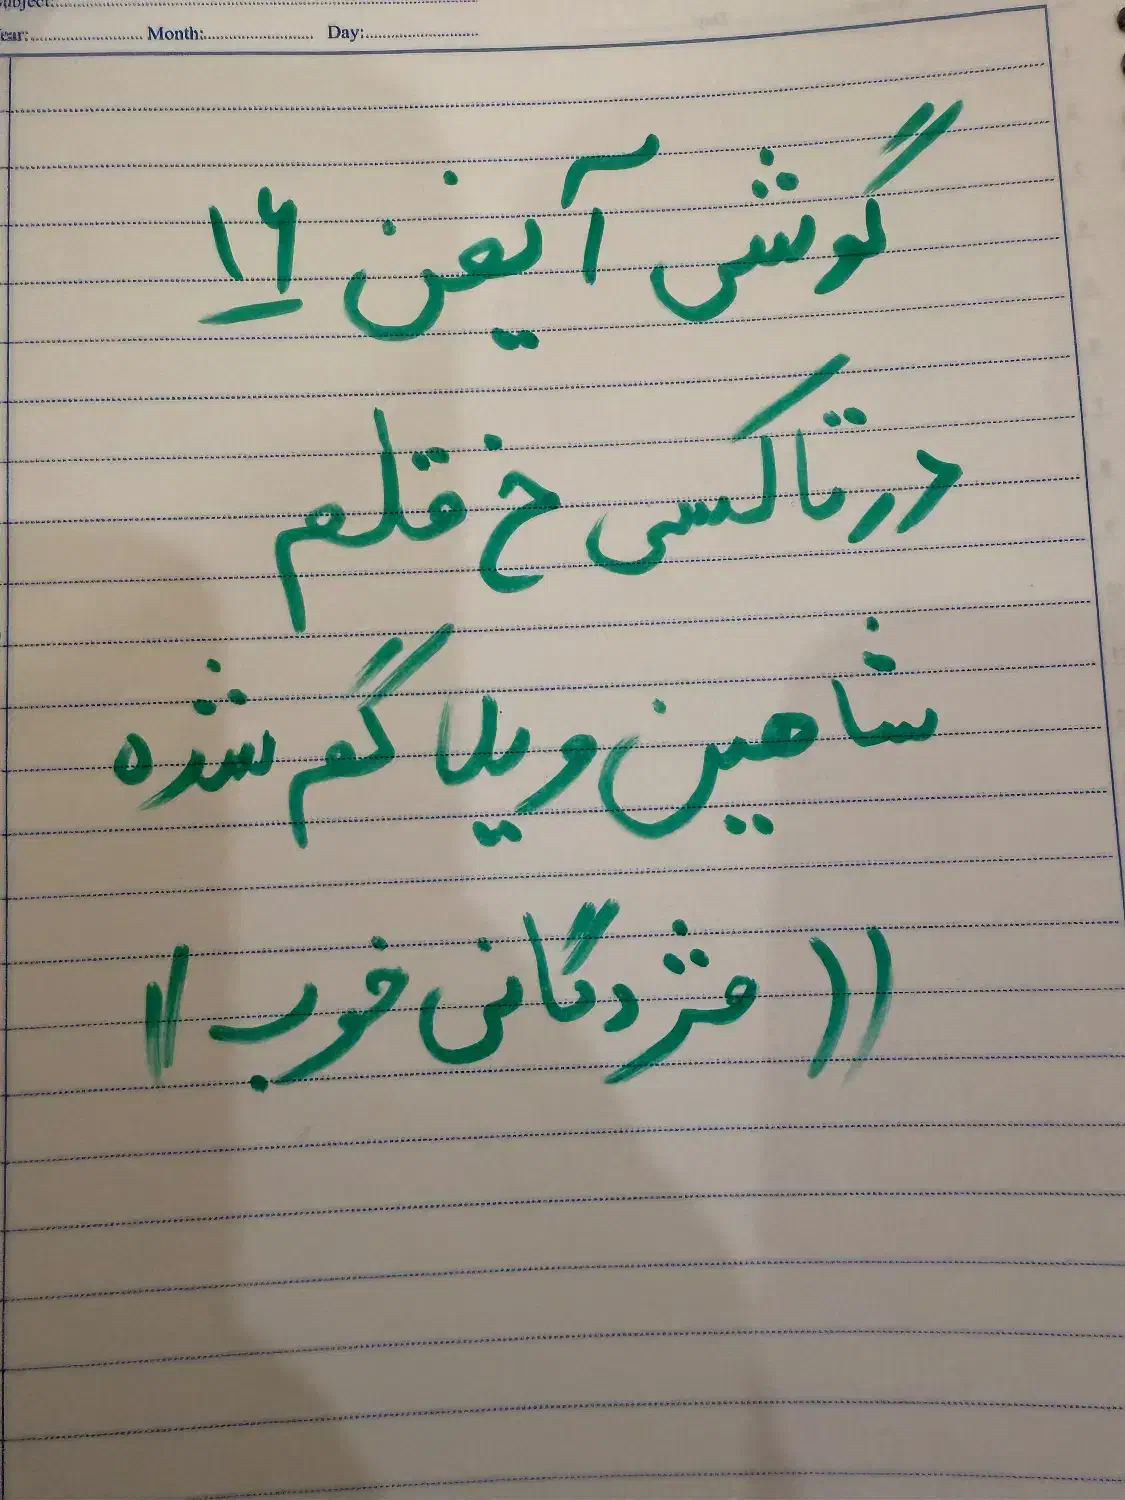 Subject:
Year: Month: Day:
گوشی آیفن ۱۶
در تاکسی خ قلم
شاهین ویلا گم شده
(( مژدگانی خوب ))